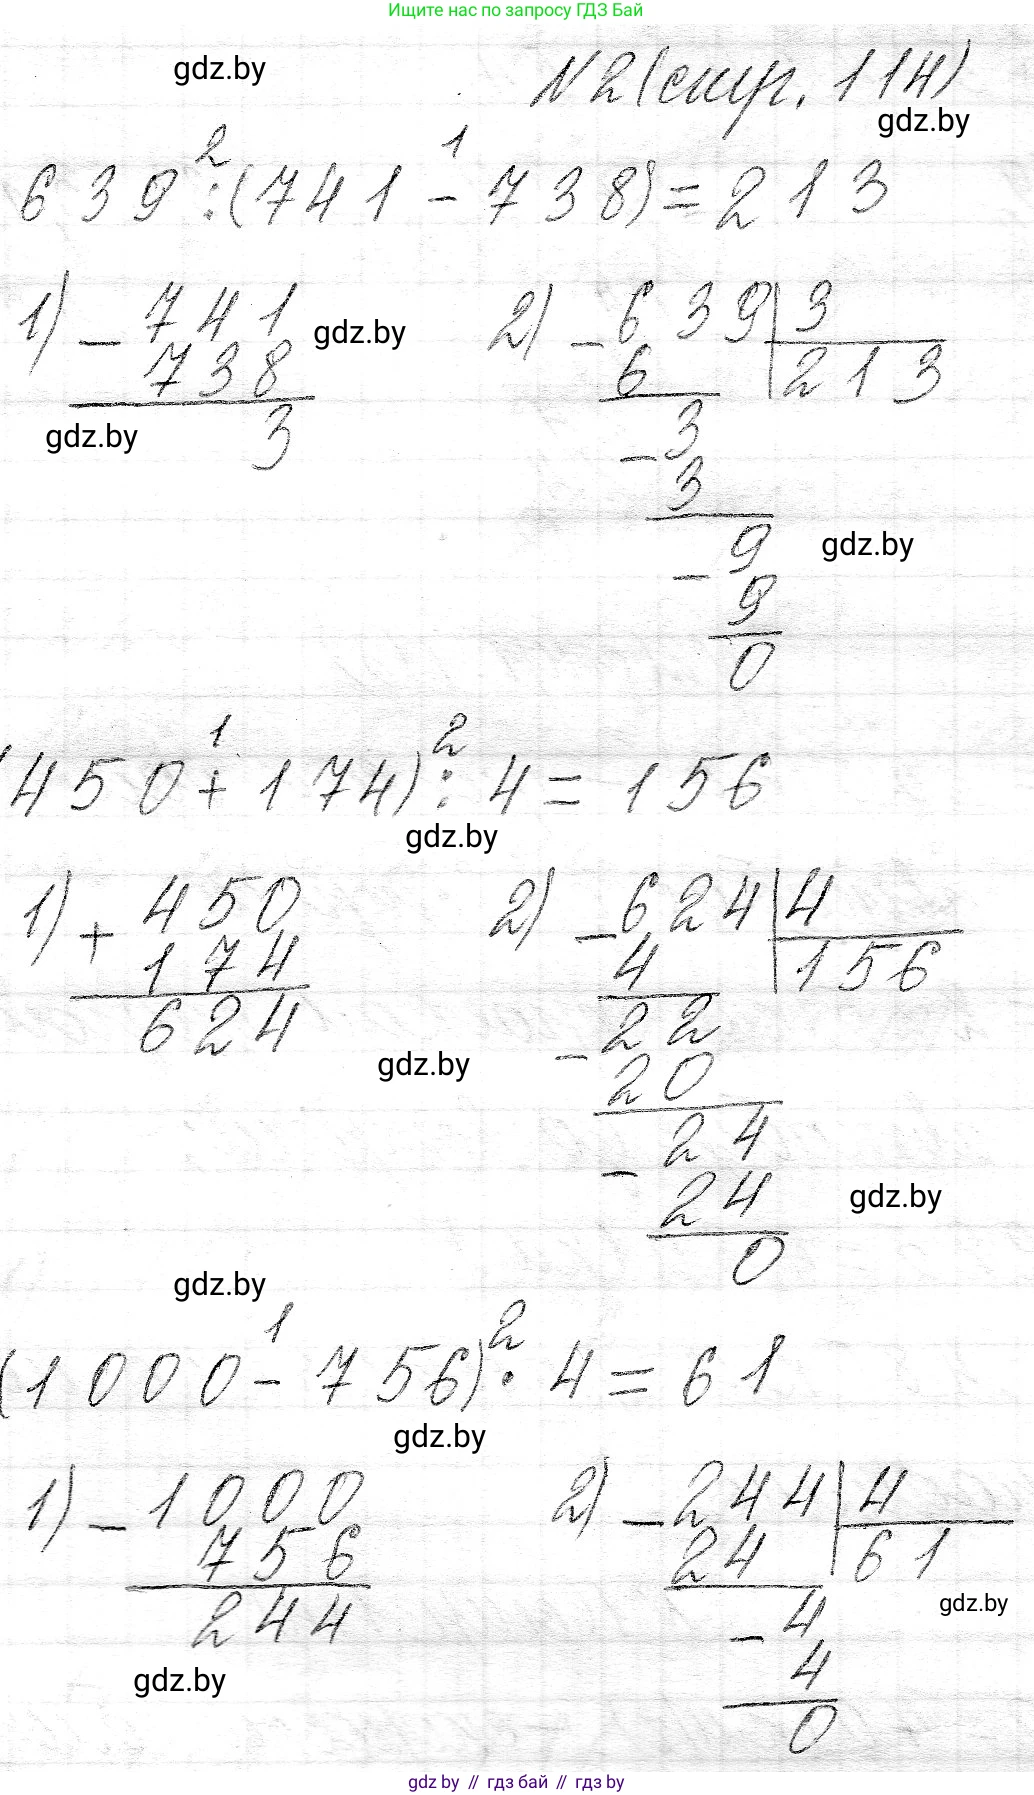 Ищите нас по запросу ГДЗ Бай
gdz.by
№2 (стр. 114)
gdz.by
2 1
639 : (741 - 738) = 213
1) - 741
738
3
gdz.by
gdz.by
2) - 639 | 3
6 213
- 3
3
- 9
9
0
gdz.by
1 2
(450 + 174) : 4 = 156
gdz.by
1) + 450
174
624
gdz.by
2) - 624 | 4
4 156
- 22
20
- 24
24
0
gdz.by
gdz.by
1 2
(1000 - 756) · 4 = 61
gdz.by
1) - 1000
756
244
gdz.by
2) - 244 | 4
24 61
- 4
4
0
gdz.by
gdz.by // гдз бай // gdz.by